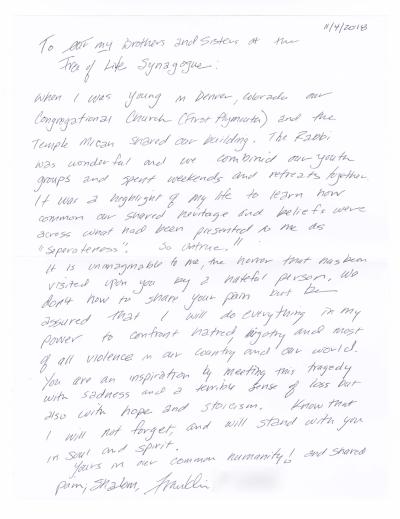 11/4/2018
To our my Brothers and Sisters at the
Tree of Life Synagogue:
When I was young in Denver, Colorado our
Congregational Church (First Plymouth) and the
Temple Micah shared our building. The Rabbi
was wonderful and we combined our youth
groups and spent weekends and retreats together.
It was a highlight of my life to learn how
common our shared heritage and beliefs were
across what had been presented to me as
"seperateness". So untrue!!
It is unimaginable to me, the horror that has been
visited upon you by a hateful person. We
don't how to share your pain but be
assured that I will do everything in my
power to confront hatred, bigotry and most
of all violence in our country and our world.
You are an inspiration by meeting this tragedy
with sadness and a terrible sense of loss but
also with hope and stoicism. Know that
I will not forget, and will stand with you
in soul and spirit.
Yours in our common humanity! and shared
pain, Shalom, Franklin